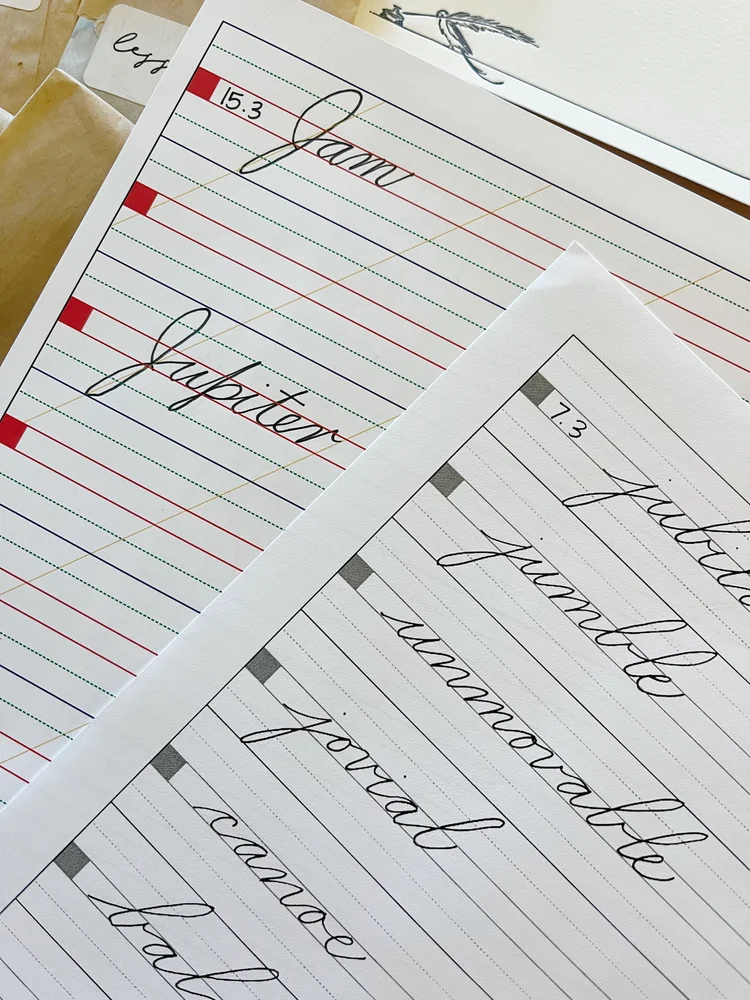 less
15.3 Jam
Jupiter
7.3
jumble
unmovable
jovial
canoe
bal